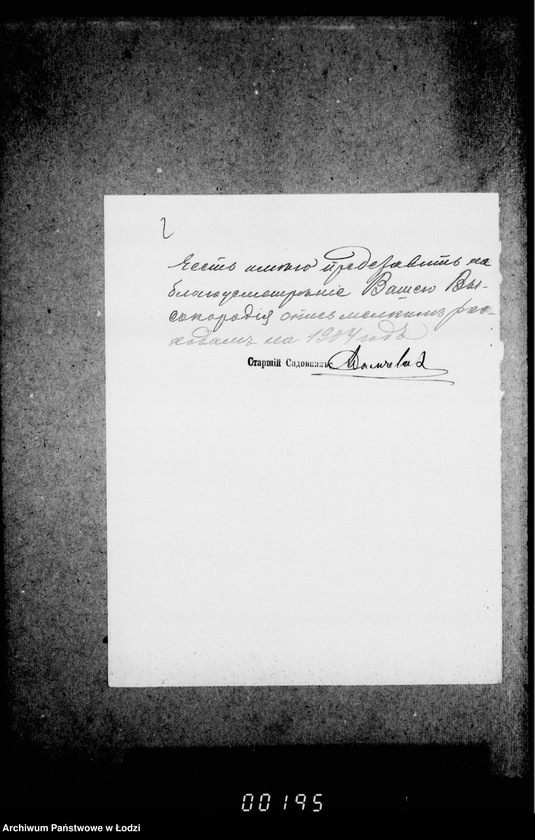 2
Честь имею представить на
благоусмотрѣніе Вашего Вы-
сокородія опись мелкимъ рас-
ходамъ на 1904 годъ
Старшій Садовникъ
00195
Archiwum Państwowe w Łodzi